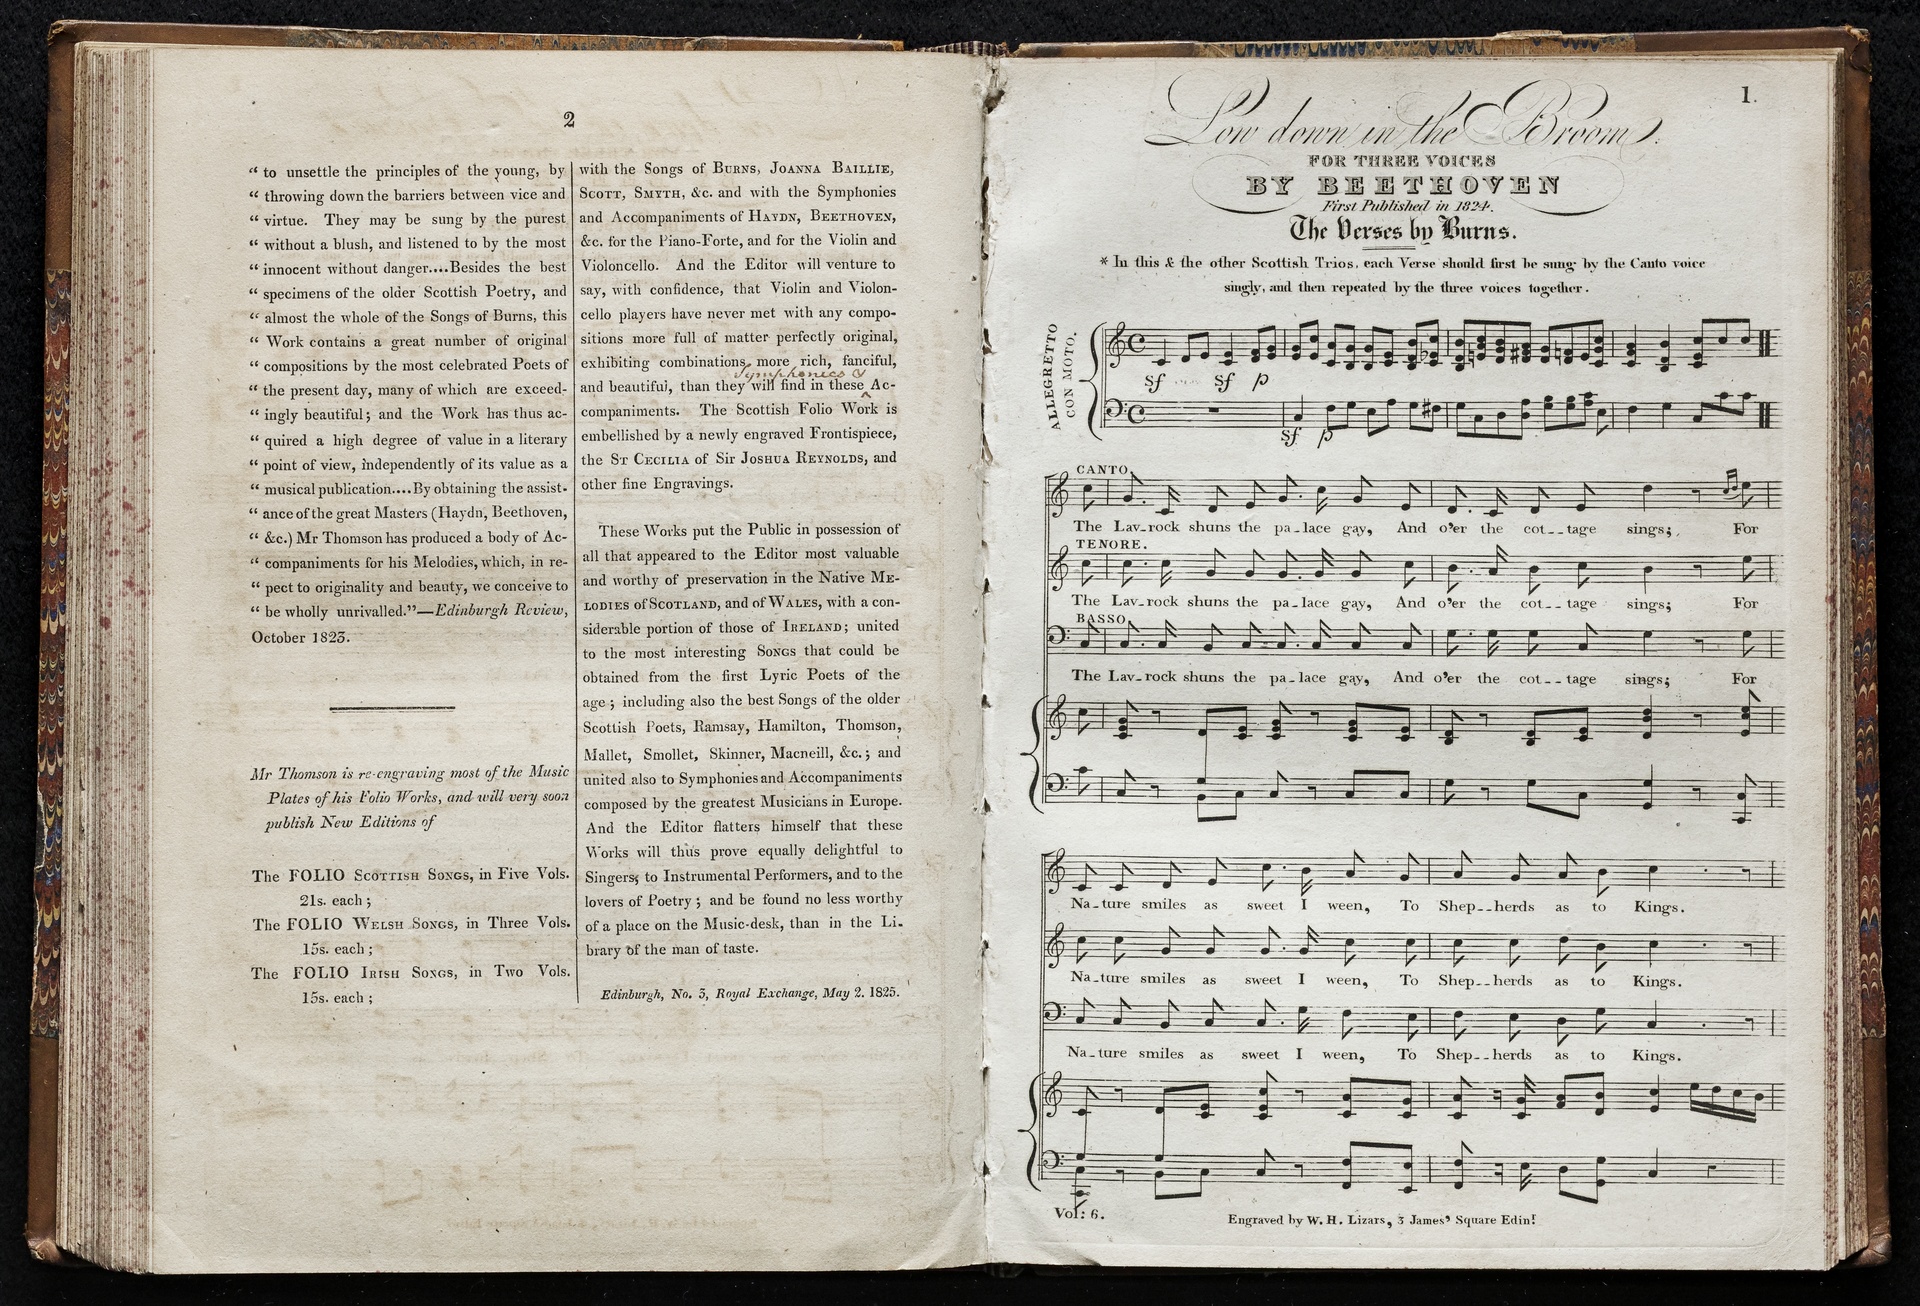 2
“ to unsettle the principles of the young, by
“ throwing down the barriers between vice and
“ virtue. They may be sung by the purest
“ without a blush, and listened to by the most
“ innocent without danger....Besides the best
“ specimens of the older Scottish Poetry, and
“ almost the whole of the Songs of Burns, this
“ Work contains a great number of original
“ compositions by the most celebrated Poets of
“ the present day, many of which are exceed-
“ ingly beautiful; and the Work has thus ac-
“ quired a high degree of value in a literary
“ point of view, independently of its value as a
“ musical publication....By obtaining the assist-
“ ance of the great Masters (Haydn, Beethoven,
“ &c.) Mr Thomson has produced a body of Ac-
“ companiments for his Melodies, which, in re-
“ pect to originality and beauty, we conceive to
“ be wholly unrivalled.”—Edinburgh Review,
October 1823.
Mr Thomson is re-engraving most of the Music
Plates of his Folio Works, and will very soon
publish New Editions of
The FOLIO SCOTTISH SONGS, in Five Vols.
21s. each;
The FOLIO WELSH SONGS, in Three Vols.
15s. each;
The FOLIO IRISH SONGS, in Two Vols.
15s. each;
with the Songs of BURNS, JOANNA BAILLIE,
SCOTT, SMYTH, &c. and with the Symphonies
and Accompaniments of HAYDN, BEETHOVEN,
&c. for the Piano-Forte, and for the Violin and
Violoncello. And the Editor will venture to
say, with confidence, that Violin and Violon-
cello players have never met with any compo-
sitions more full of matter perfectly original,
exhibiting combinations more rich, fanciful,
Symphonies &
and beautiful, than they will find in these Ac-
companiments. The Scottish Folio Work is
embellished by a newly engraved Frontispiece,
the ST CECILIA of Sir JOSHUA REYNOLDS, and
other fine Engravings.
These Works put the Public in possession of
all that appeared to the Editor most valuable
and worthy of preservation in the Native ME-
LODIES of SCOTLAND, and of WALES, with a con-
siderable portion of those of IRELAND; united
to the most interesting SONGS that could be
obtained from the first Lyric Poets of the
age; including also the best Songs of the older
Scottish Poets, Ramsay, Hamilton, Thomson,
Mallet, Smollet, Skinner, Macneill, &c.; and
united also to Symphonies and Accompaniments
composed by the greatest Musicians in Europe.
And the Editor flatters himself that these
Works will thus prove equally delightful to
Singers, to Instrumental Performers, and to the
lovers of Poetry; and be found no less worthy
of a place on the Music-desk, than in the Li-
brary of the man of taste.
Edinburgh, No. 3, Royal Exchange, May 2. 1825.
1.
Low down in the Broom.
FOR THREE VOICES
BY BEETHOVEN
First Published in 1824.
The Verses by Burns.
* In this & the other Scottish Trios, each Verse should first be sung by the Canto voice
singly, and then repeated by the three voices together.
ALLEGRETTO
CON MOTO.
Sf Sf p
Sf p
CANTO.
The Lav-rock shuns the pa-lace gay, And o’er the cot--tage sings; For
TENORE.
The Lav-rock shuns the pa-lace gay, And o’er the cot--tage sings; For
BASSO.
The Lav-rock shuns the pa-lace gay, And o’er the cot--tage sings; For
Na-ture smiles as sweet I ween, To Shep--herds as to Kings.
Na-ture smiles as sweet I ween, To Shep--herds as to Kings.
Na-ture smiles as sweet I ween, To Shep--herds as to Kings.
Vol: 6.
Engraved by W. H. Lizars, 3 James’ Square Edinr.